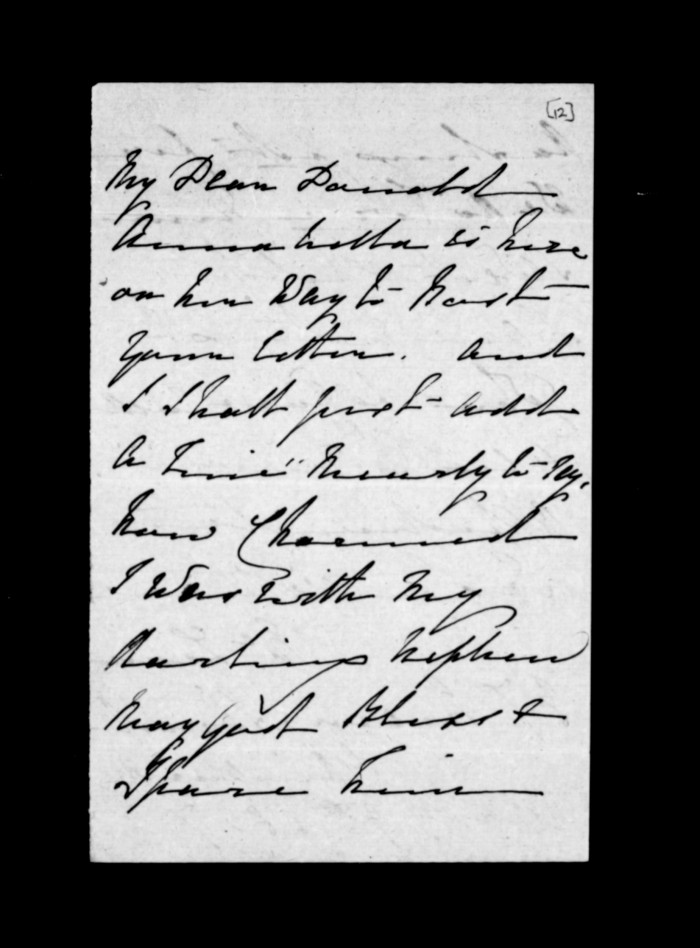 [12]
My Dear Donald
Annabella is here
on her Way to Post
your letter. And
I Shall just add
a Line Merely to say,
how Charmed
I Was with My
darling Nephew
May God Bless &
Spare him